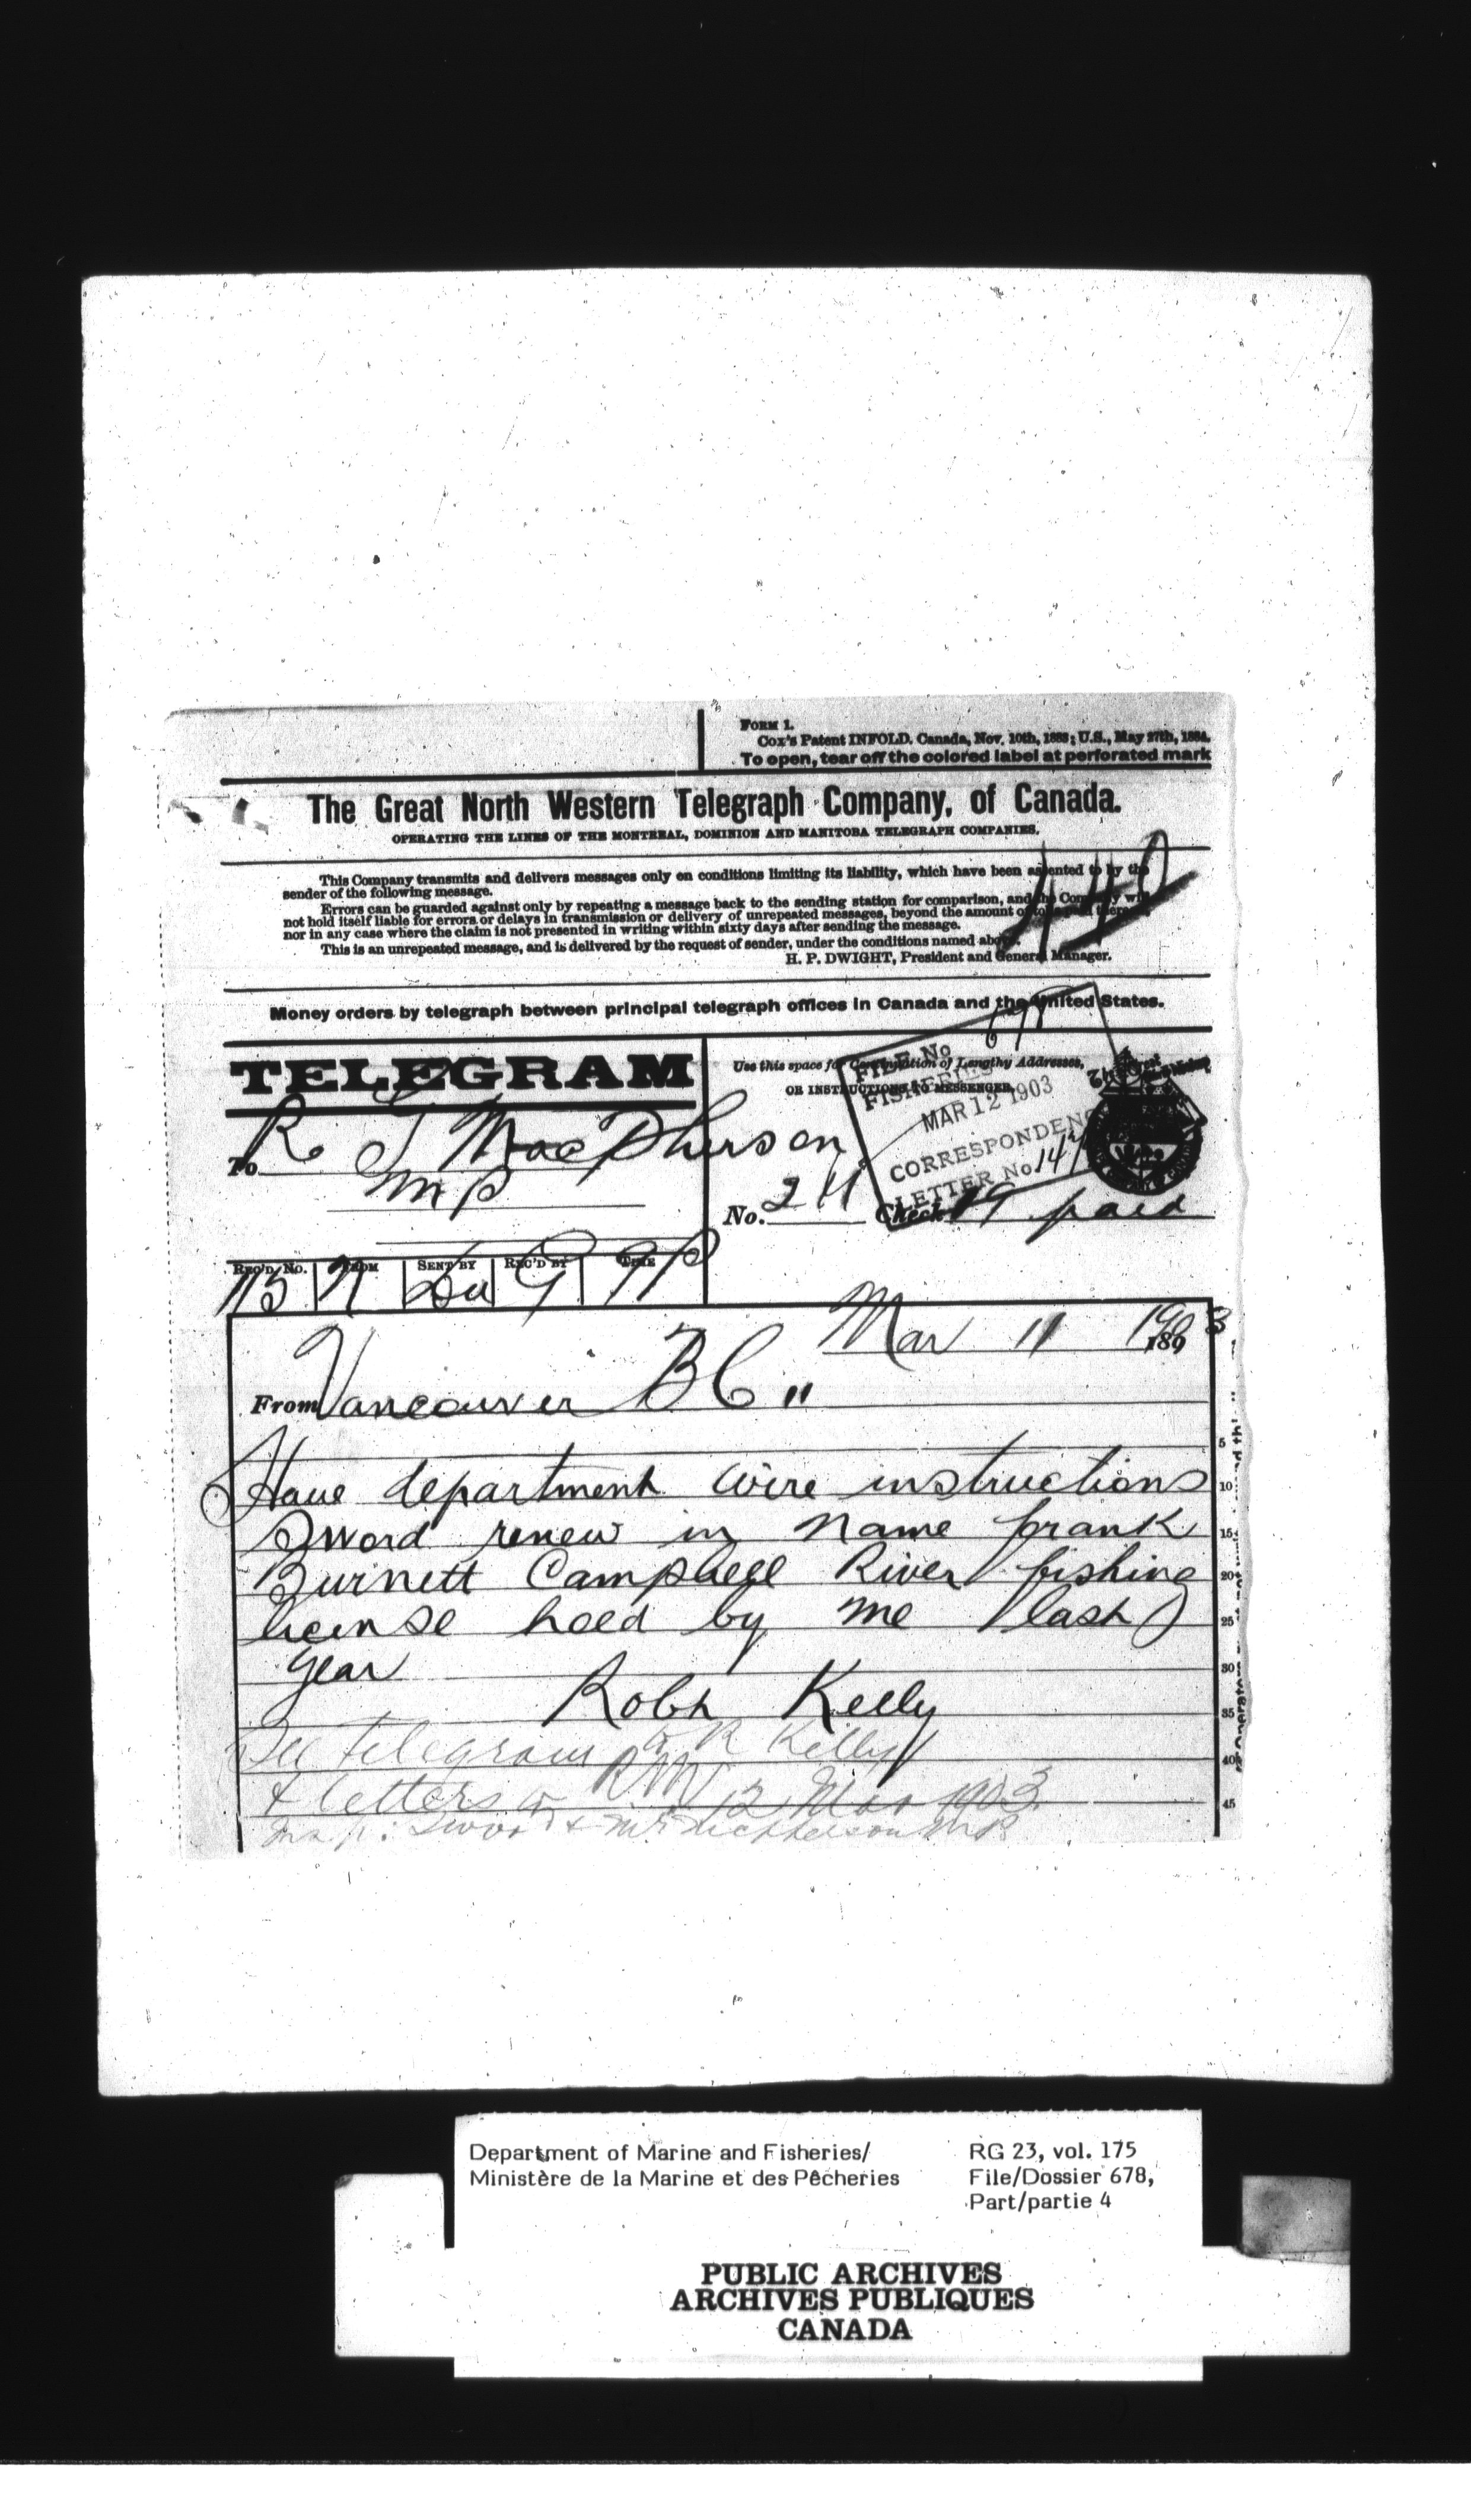 FORM 1.
Cox's Patent INFOLD. Canada, Nov. 10th, 1883; U.S., May 27th, 1884.
To open, tear off the colored label at perforated mark
The Great North Western Telegraph Company, of Canada.
OPERATING THE LINES OF THE MONTREAL, DOMINION AND MANITOBA TELEGRAPH COMPANIES.
This Company transmits and delivers messages only on conditions limiting its liability, which have been assented to by the
sender of the following message.
Errors can be guarded against only by repeating a message back to the sending station for comparison, and the Company will
not hold itself liable for errors or delays in transmission or delivery of unrepeated messages, beyond the amount of tolls paid thereon,
nor in any case where the claim is not presented in writing within sixty days after sending the message.
This is an unrepeated message, and is delivered by the request of sender, under the conditions named above.
H. P. DWIGHT, President and General Manager.
440
Money orders by telegraph between principal telegraph offices in Canada and the United States.
TELEGRAM
Use this space for Continuation of Lengthy Addresses,
OR INSTRUCTIONS TO MESSENGER.
FILE No 678
FISHERIES
MAR 12 1903
CORRESPONDENCE
LETTER No
To R G MacPherson
MP
No. Check 19 paid
REC'D No. FROM SENT BY REC'D BY TIME
Mar 11 1903
189
From Vancouver BC 11
Have department wire instructions
Sword renew in name frank
Burnett Campbell River fishing
license held by me last
year
Robt Kelly
See telegram to R Kelly
& letters to
12 Mar 1903
Insp. Sword & Mr McPherson MP
5
10
15
20
25
30
35
40
45
Department of Marine and Fisheries/
Ministère de la Marine et des Pêcheries
RG 23, vol. 175
File/Dossier 678,
Part/partie 4
PUBLIC ARCHIVES
ARCHIVES PUBLIQUES
CANADA